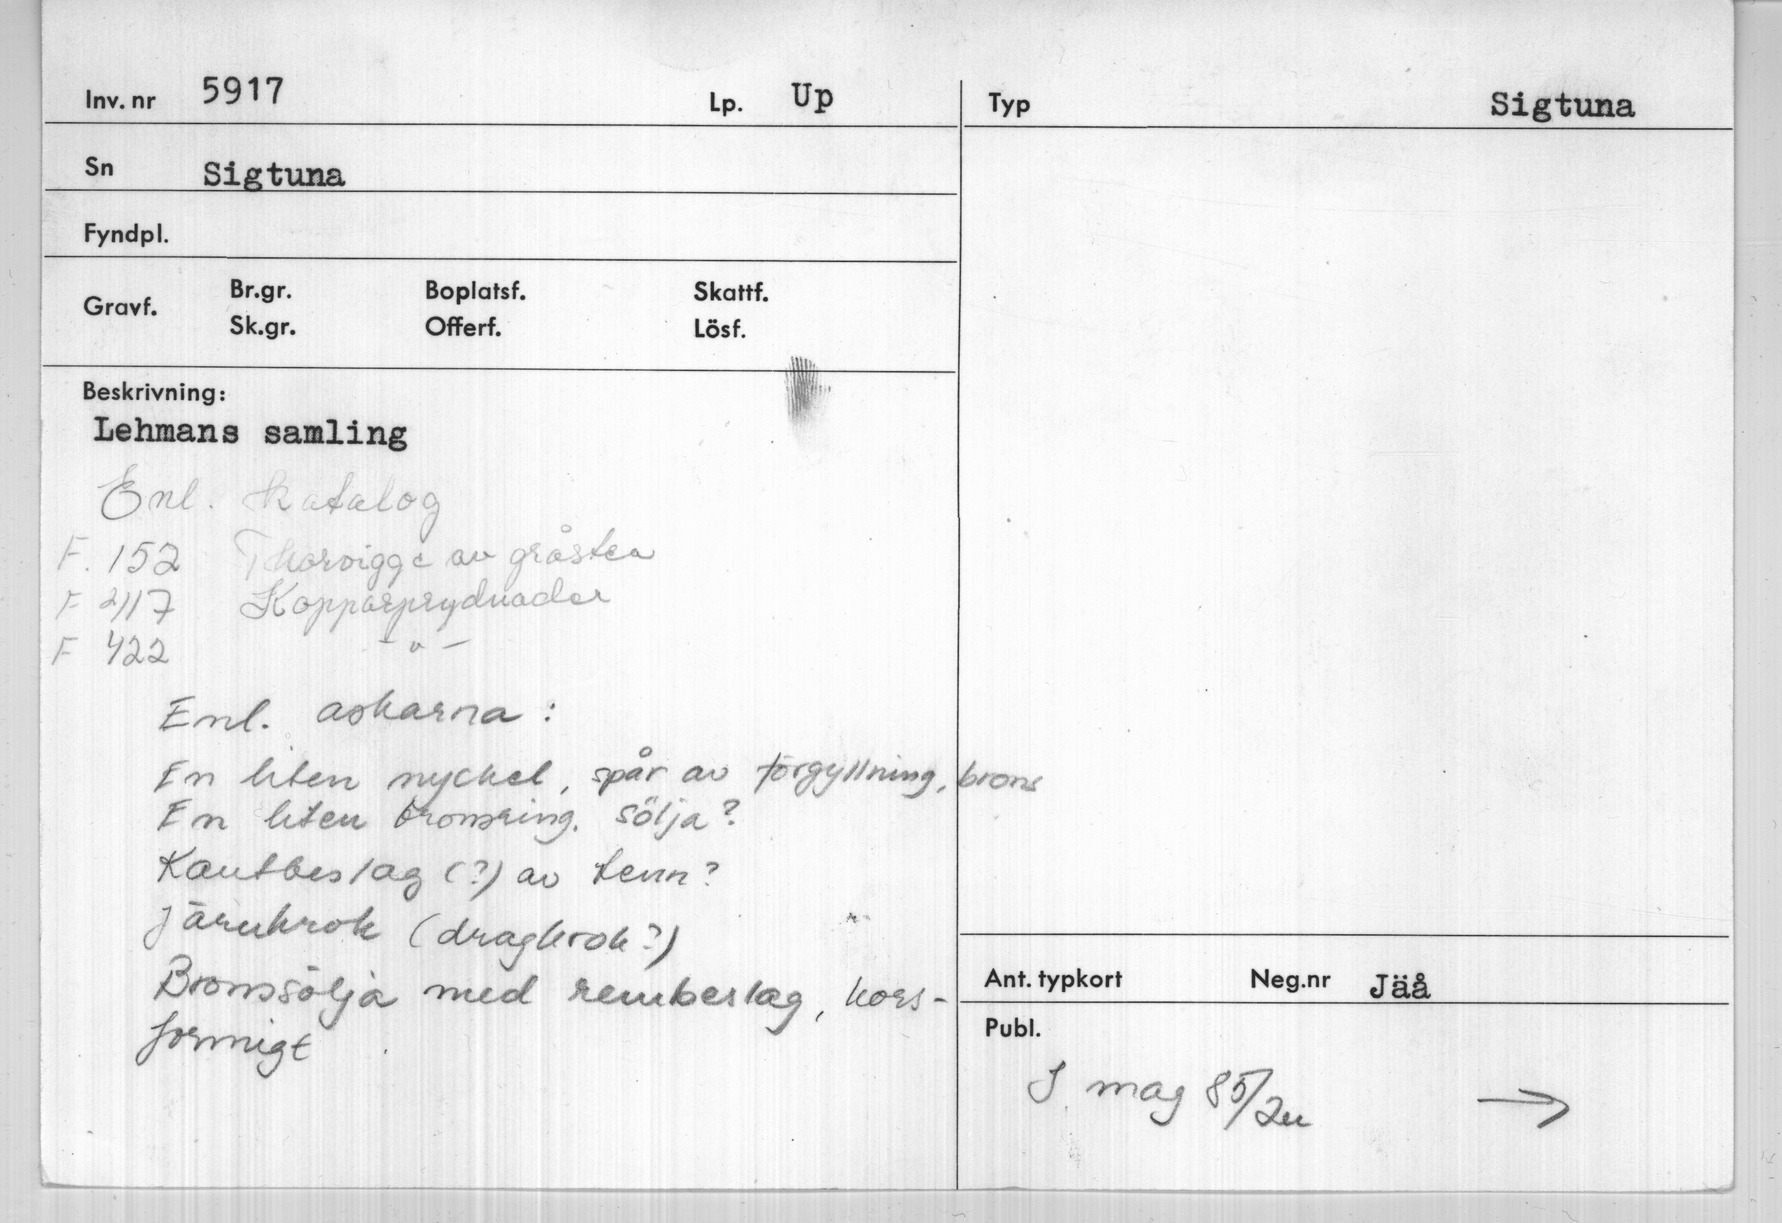 Inv. nr 5917 Lp. Up
Sn Sigtuna
Fyndpl.
Gravf. Br.gr. Boplatsf. Skattf.
Sk.gr. Offerf. Lösf.
Beskrivning:
Lehmans samling
Enl. katalog
F. 152 Thorvigge av gråsten
F 2117 Kopparprydnader
F 422 - " -
Enl. askarna :
En liten nyckel, spår av förgyllning, brons
En liten bronsring. sölja?
Kantbeslag (?) av tenn?
Järnkrok (dragkrok?)
Bronssölja med rembeslag, kors-
formigt
Typ Sigtuna
Ant. typkort Neg.nr Jäå
Publ.
I mag 85/2u →